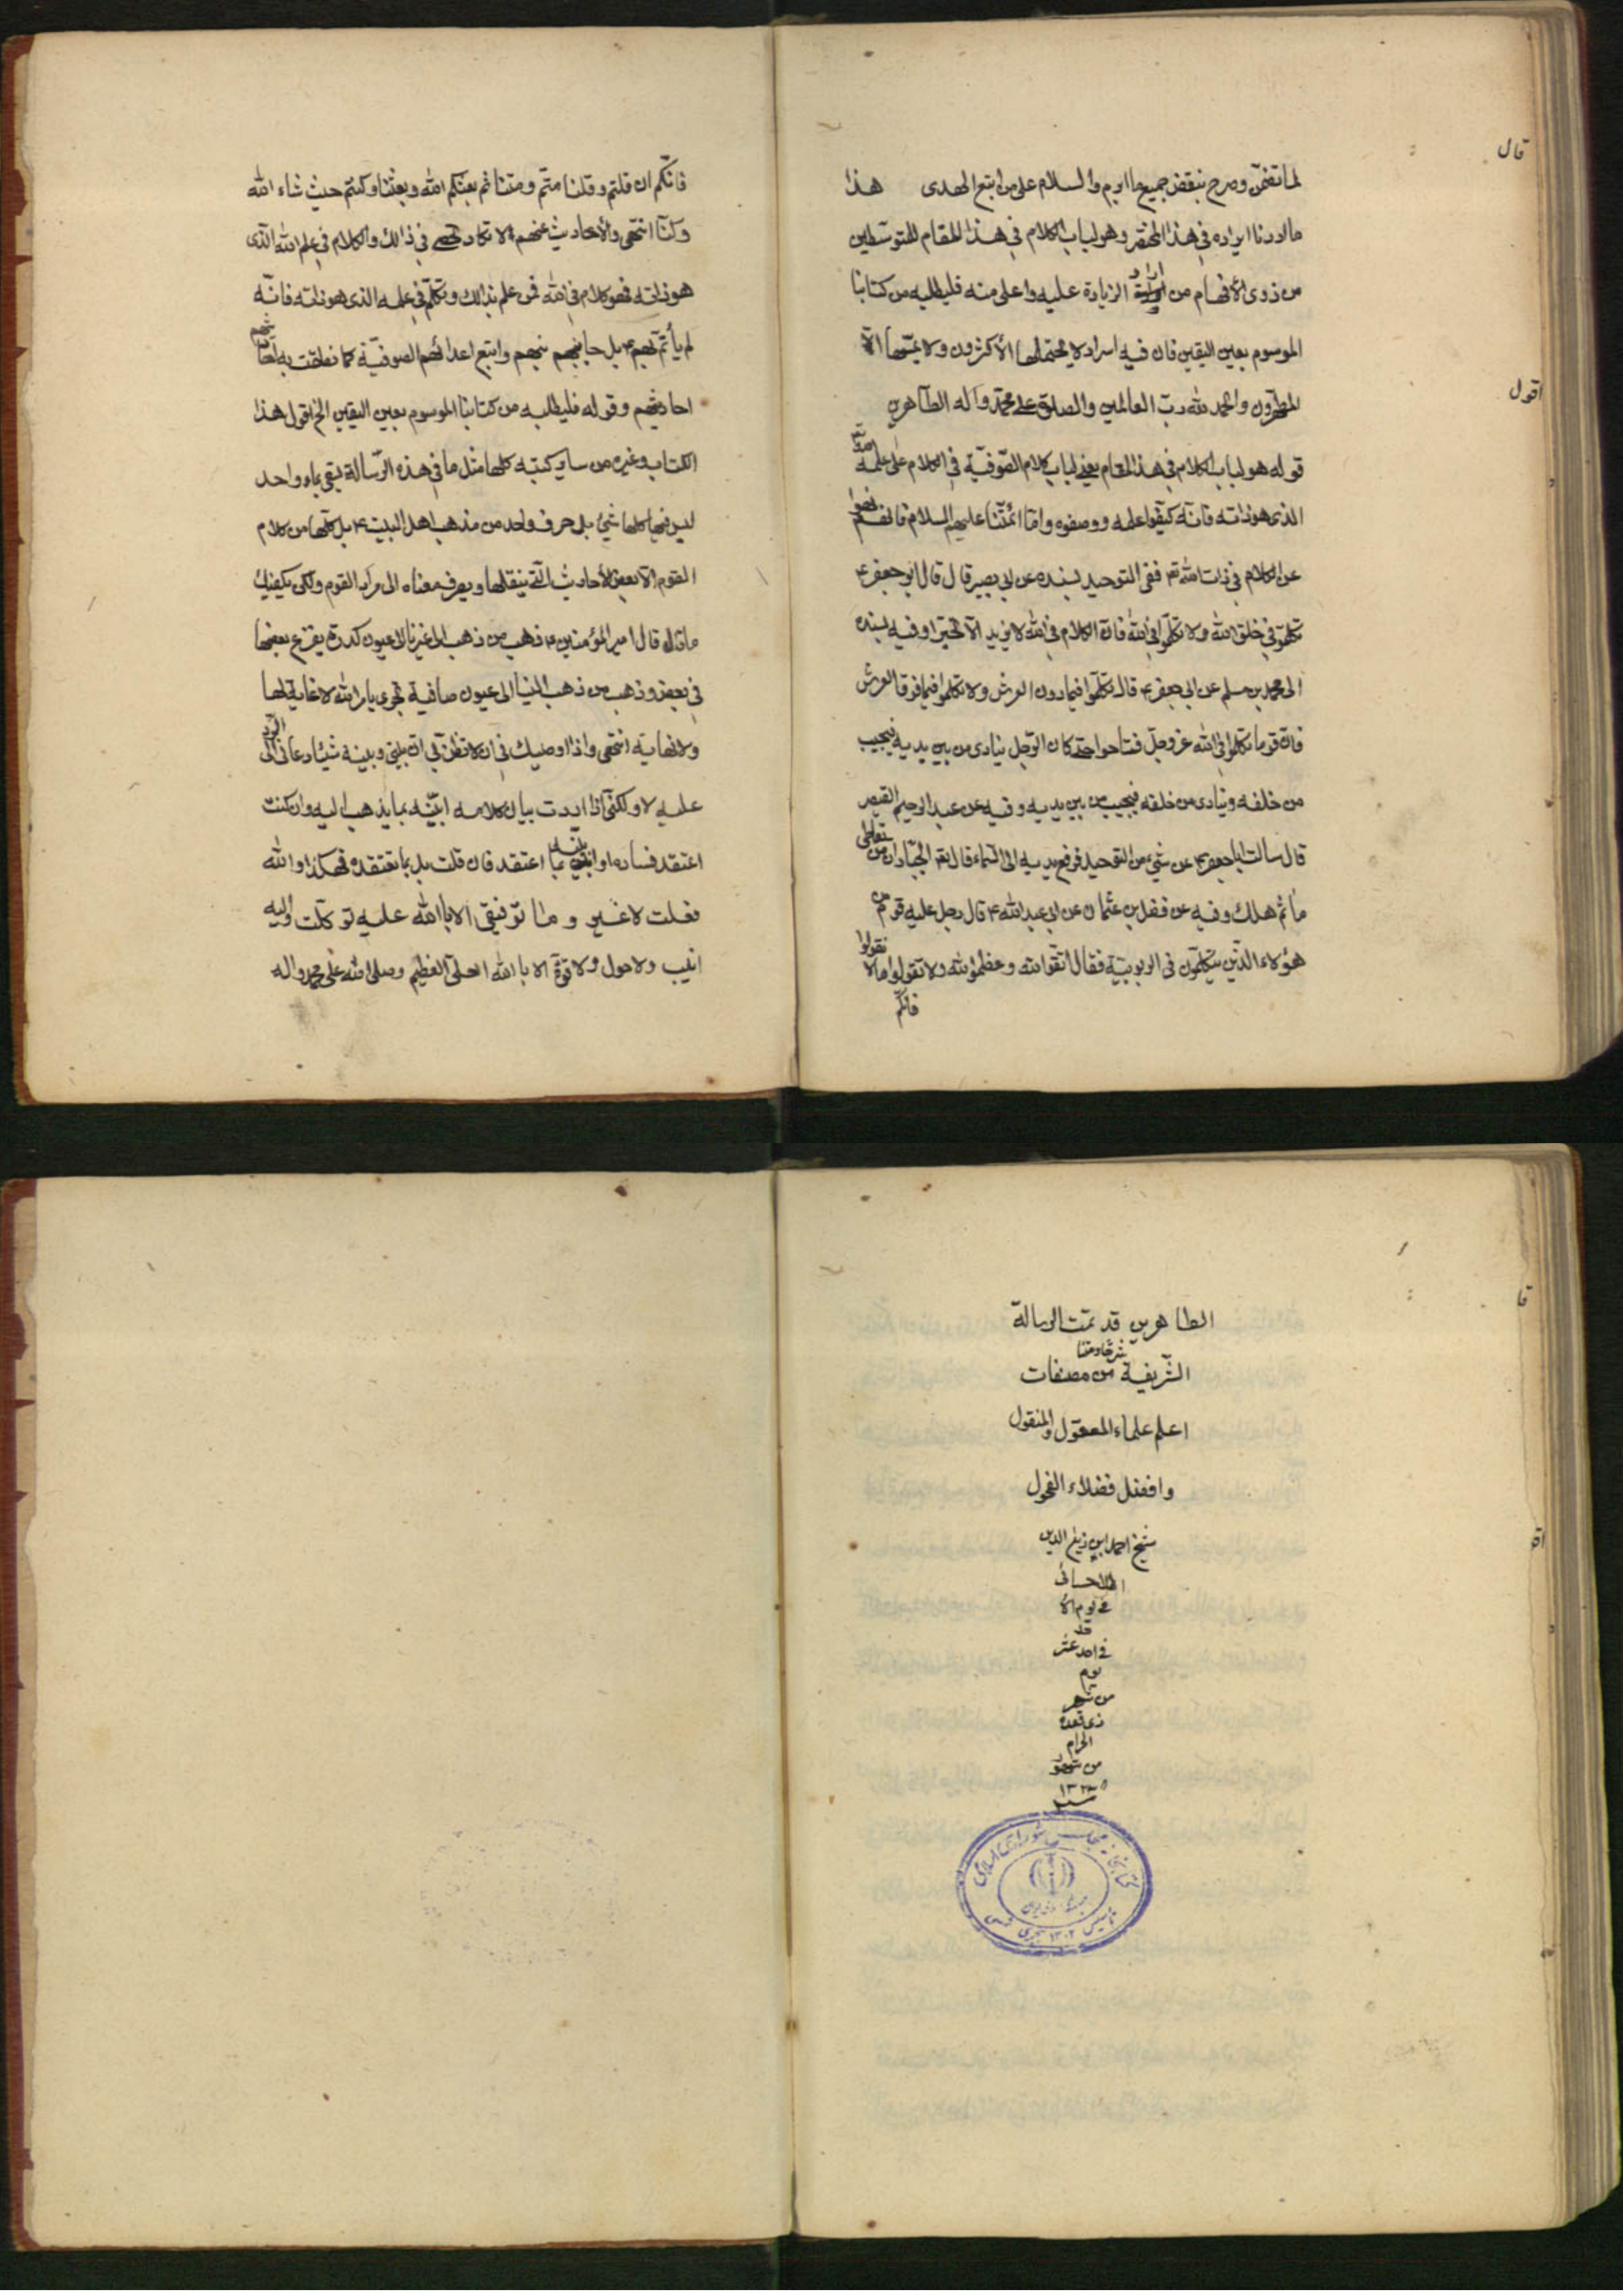 قال
لما تضمّن وصرح بنقض جميع ما ابرم والسلام على من اتبع الهدى هذا
ما اردنا ايراده في هذا المختصر وهو لباب الكلام في هذا المقام للمتوسطين
من ذوى الأفهام من اراد الزيادة عليه واعلى منه فليطلبه من كتابنا
الموسوم بعين اليقين فان فيه اسرار لا يحتملها الأكثرون ولا يمسّها الّا
المطهّرون والحمد لله ربّ العالمين والصلوة على محمّد وآله الطاهرين
اقول
قوله هو لباب الكلام في هذا المقام يعنى لباب كلام الصّوفيّة في الكلام على علمه تع
الذى هو ذاته فانّه كيّفوا علمه ووصفوه وامّا ائمّتنا عليهم السلام فانهم نهوا
عن الكلام في ذات الله تع ففى التوحيد بسنده عن ابى بصير قال قال ابو جعفر ع
تكلّموا في خلق الله ولا تكلّموا في الله فانّ الكلام في الله لا يزيد الّا تحيّرا وفيه بسنده
الى محمد بن مسلم عن ابى جعفر ع قال تكلّموا فيما دون العرش ولا تكلّموا فيما فوق العرش
فانّ قوما تكلّموا في الله عزّ وجلّ فتاهوا حتى كان الرّجل ينادى من بين يديه فيجيب
من خلفه وينادى من خلفه فيجيب من بين يديه وفيه عن عبد الرحيم القصير
قال سالت ابا جعفر ع عن شيء من التوحيد فرفع يديه الى السّماء فقال تع الجبّار ان من تعاطى
ما ثم هلك وفيه عن فضل بن عثمان عن ابى عبد الله ع قال دخل عليه قوم من
هؤلاء الّذين يتكلّمون في الربوبيّة فقال اتّقوا الله وعظّموا الله ولا تقولوا ما لا نقول
فانّكم
فانّكم ان قلتم وقلنا متّم ومتنا ثم بعثكم الله وبعثنا وكنتم حيث شاء الله
وكنّا انتهى والأحاديث عنهم لا تكاد تحصى في ذالك والكلام في علم الله الّذى
هو ذاته فهو كلام في الله فمن علم بذالك وتكلّم في علمه الذى هو ذاته فانّه
لم يأتمّ بهم ع بل جانبهم واتبع اعدائهم الصوفيّة كما نطقت به
احاديثهم وقوله فليطلبه من كتابنا الموسوم بعين اليقين الخ اقول هذا
الكتاب وغيره من ساير كتبه كلها مثل ما في هذه الرّسالة يسقى بماء واحد
ليس فيها كلها شيء بل حرف واحد من مذهب اهل البيت ع بل كلّها من كلام
القوم الّا بعض الأحاديث الّتى ينقلها ويصرف معناه الى مراد القوم ولكن يكفيك
ما قال قال امير المؤمنين ع ذهب من ذهب الى غيرنا الى عيون كدرة يفرغ بعضها
في بعض وذهب من ذهب الينا الى عيون صافية تجرى بامر الله لا غاية لها
ولا نهاية انتهى واذا اوصيك في ان لا تظن بى ان بينى وبينه شيئا دعانى الى الرّد
عليه لا ولكنى اذا اردت بيان كلامه ابيّنه بما يذهب اليه وان كنت
اعتقد فساده او ابيّنه بما اعتقد فان قلت بل بما تعتقده فهكذا والله
فعلت لا غير وما توفيقى الا باالله عليه توكّلت واليه
انيب ولا حول ولا قوّة الا باالله العلىّ العظيم وصلى الله على محمد واله
الطاهرين قد تمت الرسالة
الشّريفة من مصنفات
اعلم علماء المعقول والمنقول
وافضل فضلاء الفحول
شيخ احمد ابن زين الدين
الاحسائى
فى يوم الا
حد
فى احد عشر
يوم
من شهر
ذى قعدة
الحرام
من شهور
كتابخانه مجلس شوراى اسلامى
تأسيس ١٣٠٢ هجرى شمسى